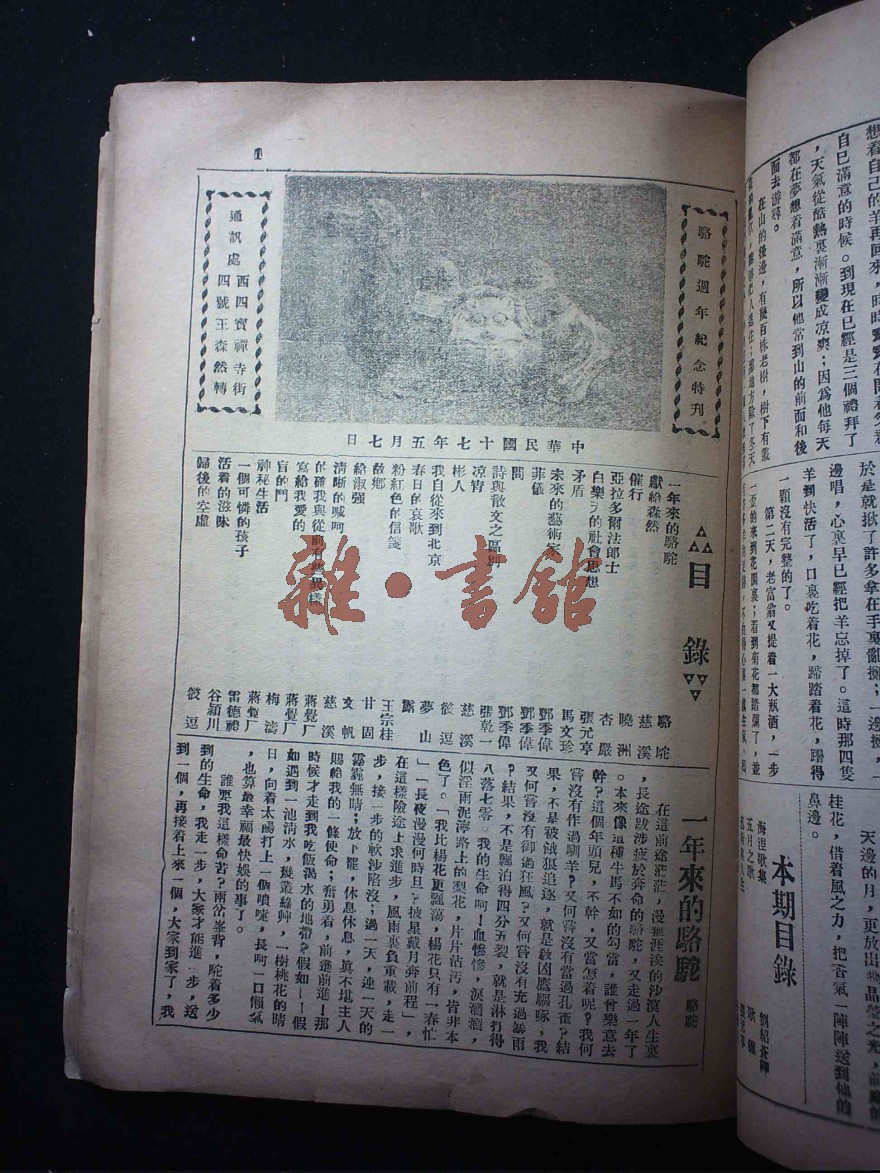 駱駝週年紀念特刊
通訊處
西四寶禪寺街
四號王森然轉
中華民國十七年五月七日
目錄
一年來的駱駝
獻給森然
催行
亞拉多爾法郎士
的社會思想
矛盾
未來的藝術家
菲儀
問
詩與散文之區別
涼宵
彬人
我自從來到北京
春日的哀歌
粉紅色的信箋
故鄉
給淑強
清晰的喊呵
的確我與從前有些異樣
寫給我愛的
盲的鬥
神秘生活
一個可憐的孩子
活着的滋味
歸後的空虛
駱駝
慈溪
曉洲
杏嚴
張元亨
馬文珍
鄧季偉
鄧季偉
鄧季偉
張乾一
慈溪
筱逗
夢山
露
王宗桂
甘固
文帆
慈溪
蔣覺厂
蔣覺厂
梅濤
蔣覺厂
雷德褣
谷穎川
筱逗
一年來的駱駝
駱駝
在這前途茫茫，漫無涯涘的沙漠人生裏
，長途跋涉疲於奔命的駱駝，又走過一年了
。本來像這種牛馬不如的勾當，誰曾樂意去
幹？這個年頭兒，不幹，又當怎着呢？我何
嘗沒有作過馴羊？又何嘗沒有當過孔雀？結
果，不是被餓狼追逐，就是敎凶鷹驅啄，我
又何嘗沒有御過狂風？又何嘗沒有充過暴雨
？結果，不是飄泊得四分五裂，就是淋打得
八落七零。我的生命呵！血慘慘，淚濟濟，
似淫雨泥濘路上的梨花，片片沾污，皆非本
色了。「我比楊花更飄蕩，楊花只有一春忙
」「長夜漫漫何時旦？披星戴月奔前程」，
在這樣險途上求進步，風雨裏負重載，走一
步，接一步的軟沙陷沒；過一天，連一天的
霧霾無晴；放下罷，休息休息，眞不堪主人
賜給我的一條使命；奮勇着，前進前進！那
時候才走到我吃飯渴水的地帶？假如——假
如遇到一池清水，幾叢綠艸，一樹桃花的時
日，向着太陽打上一個噴嚏，長呵一口懶氣
，也算最幸福最快娛的事了。
誰要我這樣命苦？兩岔峯背，駝着多少
到的生命，我走一步，大家才能進一步，送
到一個，再接着上來一個，大家到家了，我
想着自己的羊再回來，時時
自已滿意的時候。到現在已經是三個禮拜了
，天氣從酷熱裏漸漸變成凉爽；因爲他每天
都在夢想着滿意，所以他常到山的前面和後
面去游尋。
在山的後邊，有幾百株老樹，樹下有叢
於是就揿了許多拿在手裏亂擲；一邊擲，一
邊唱，心裏早已經把羊忘掉了。這時那四隻
羊到快活了，口裏吃着花，蹄踏着花，蹋得
一顆沒有完整的了。
第二天，老富翁又提着一大瓶酒，一步
一歪的來到花園裏；看到菊花都踏爛了，並
本期目錄
海涅歌集
五月之歌
劉紹蒼譯
桂花，借着風之力，把香氣一陣陣送到他的
鼻邊。
天邊的月，更放出